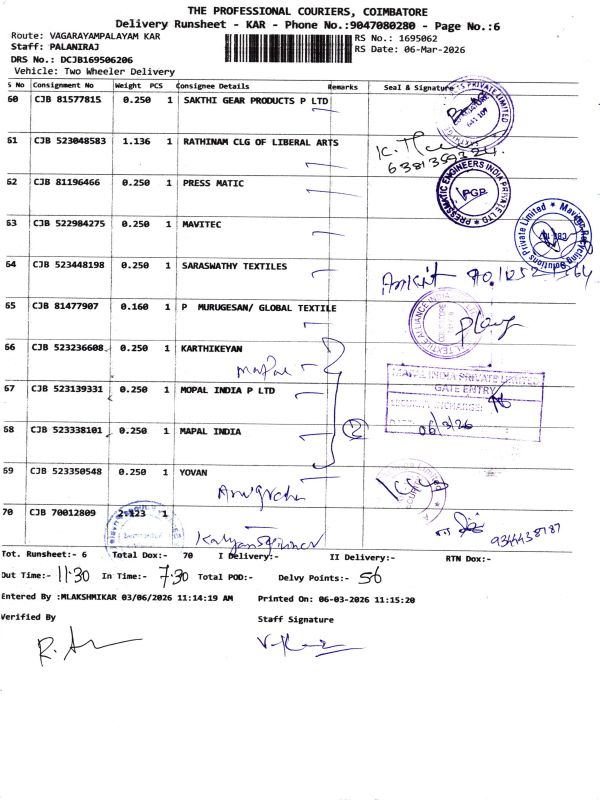 THE PROFESSIONAL COURIERS, COIMBATORE
Delivery Runsheet - KAR - Phone No.:9047080280 - Page No.:6
Route: VAGARAYAMPALAYAM KAR
RS No.: 1695062
Staff: PALANIRAJ
RS Date: 06-Mar-2026
DRS No.: DCJB169506206
Vehicle: Two Wheeler Delivery
S No Consignment No Weight PCS Consignee Details Remarks Seal & Signature
60 CJB 81577815 0.250 1 SAKTHI GEAR PRODUCTS P LTD
61 CJB 523048583 1.136 1 RATHINAM CLG OF LIBERAL ARTS
62 CJB 81196466 0.250 1 PRESS MATIC
PRESSMATIC ENGINEERS INDIA PRIVATE LTD
PGP
63 CJB 522984275 0.250 1 MAVITEC
64 CJB 523448198 0.250 1 SARASWATHY TEXTILES
Ankit
65 CJB 81477907 0.160 1 P MURUGESAN/ GLOBAL TEXTILE
66 CJB 523236608 0.250 1 KARTHIKEYAN
67 CJB 523139331 0.250 1 MOPAL INDIA P LTD
INDIA PRIVATE LIMITED
GATE ENTRY
06/3/26
68 CJB 523338101 0.250 1 MAPAL INDIA
2
69 CJB 523350548 0.250 1 YOVAN
70 CJB 70012809 2.123 1
9344438787
Tot. Runsheet:- 6 Total Dox:- 70 I Delivery:- II Delivery:- RTN Dox:-
Out Time:- 11:30 In Time:- 7:30 Total POD:- Delvy Points:- 56
Entered By :MLAKSHMIKAR 03/06/2026 11:14:19 AM Printed On: 06-03-2026 11:15:20
Verified By Staff Signature